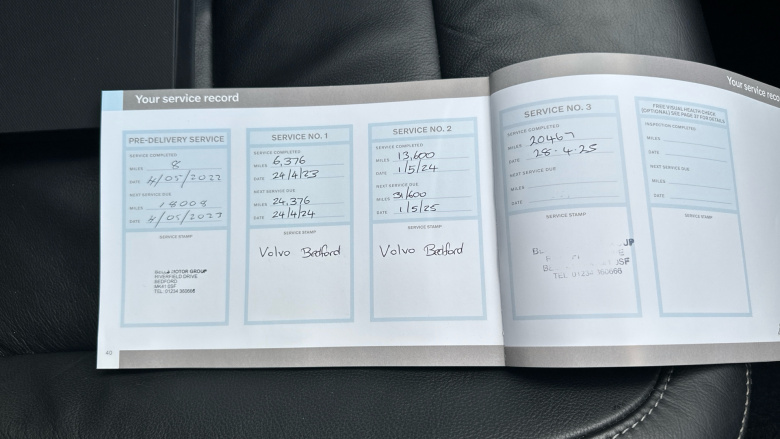 Your service record
PRE-DELIVERY SERVICE
SERVICE COMPLETED
MILES 8
DATE 4/05/2022
NEXT SERVICE DUE
MILES 18008
DATE 4/05/2023
SERVICE STAMP
MOTOR GROUP
RIVERFIELD DRIVE
BEDFORD
MK41 0SF
TEL 01234
60
SERVICE NO. 1
SERVICE COMPLETED
MILES 6,376
DATE 24/4/23
NEXT SERVICE DUE
MILES 24,376
DATE 24/4/24
SERVICE STAMP
Volvo Bedford
SERVICE NO. 2
SERVICE COMPLETED
MILES 13,600
DATE 1/5/24
NEXT SERVICE DUE
MILES 31/600
DATE 1/5/25
SERVICE STAMP
Volvo Bedford
Your service reco
SERVICE NO. 3
SERVICE COMPLETED
MILES 20467
DATE 28-4-25
NEXT SERVICE DUE
MILES
DATE
SERVICE STAMP
UP
0SF
TEL 01234
FREE VISUAL HEALTH CHECK
(OPTIONAL) SEE PAGE 37 FOR DETAILS
INSPECTION COMPLETED
MILES
DATE
NEXT SERVICE DUE
MILES
DATE
SERVICE STAMP